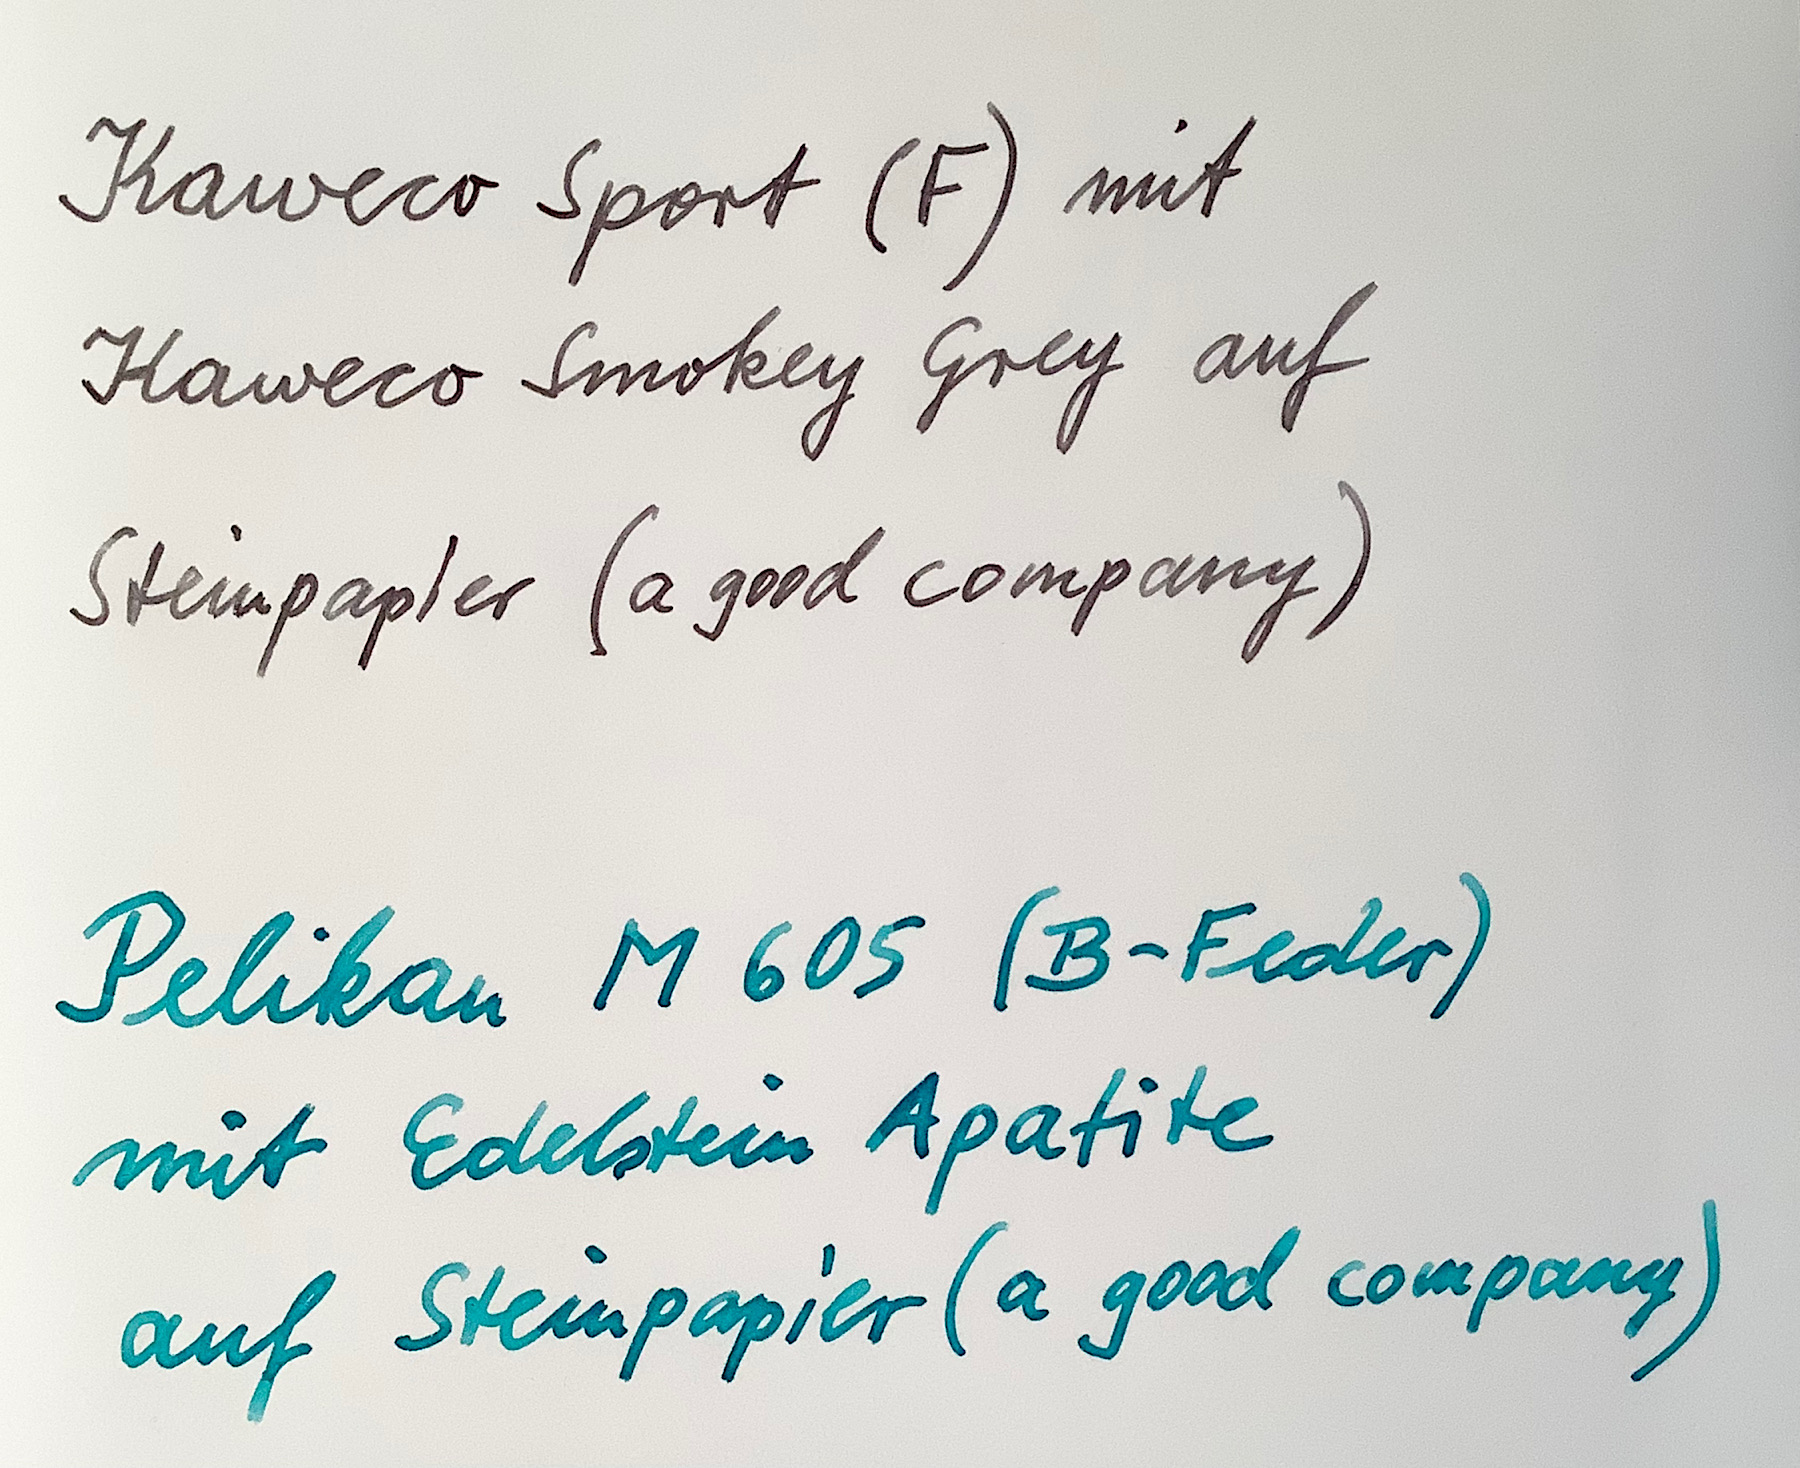 Kaweco Sport (F) mit
Kaweco Smokey Grey auf
Steinpapier (a good company)
Pelikan M 605 (B-Feder)
mit Edelstein Apatite
auf Steinpapier (a good company)